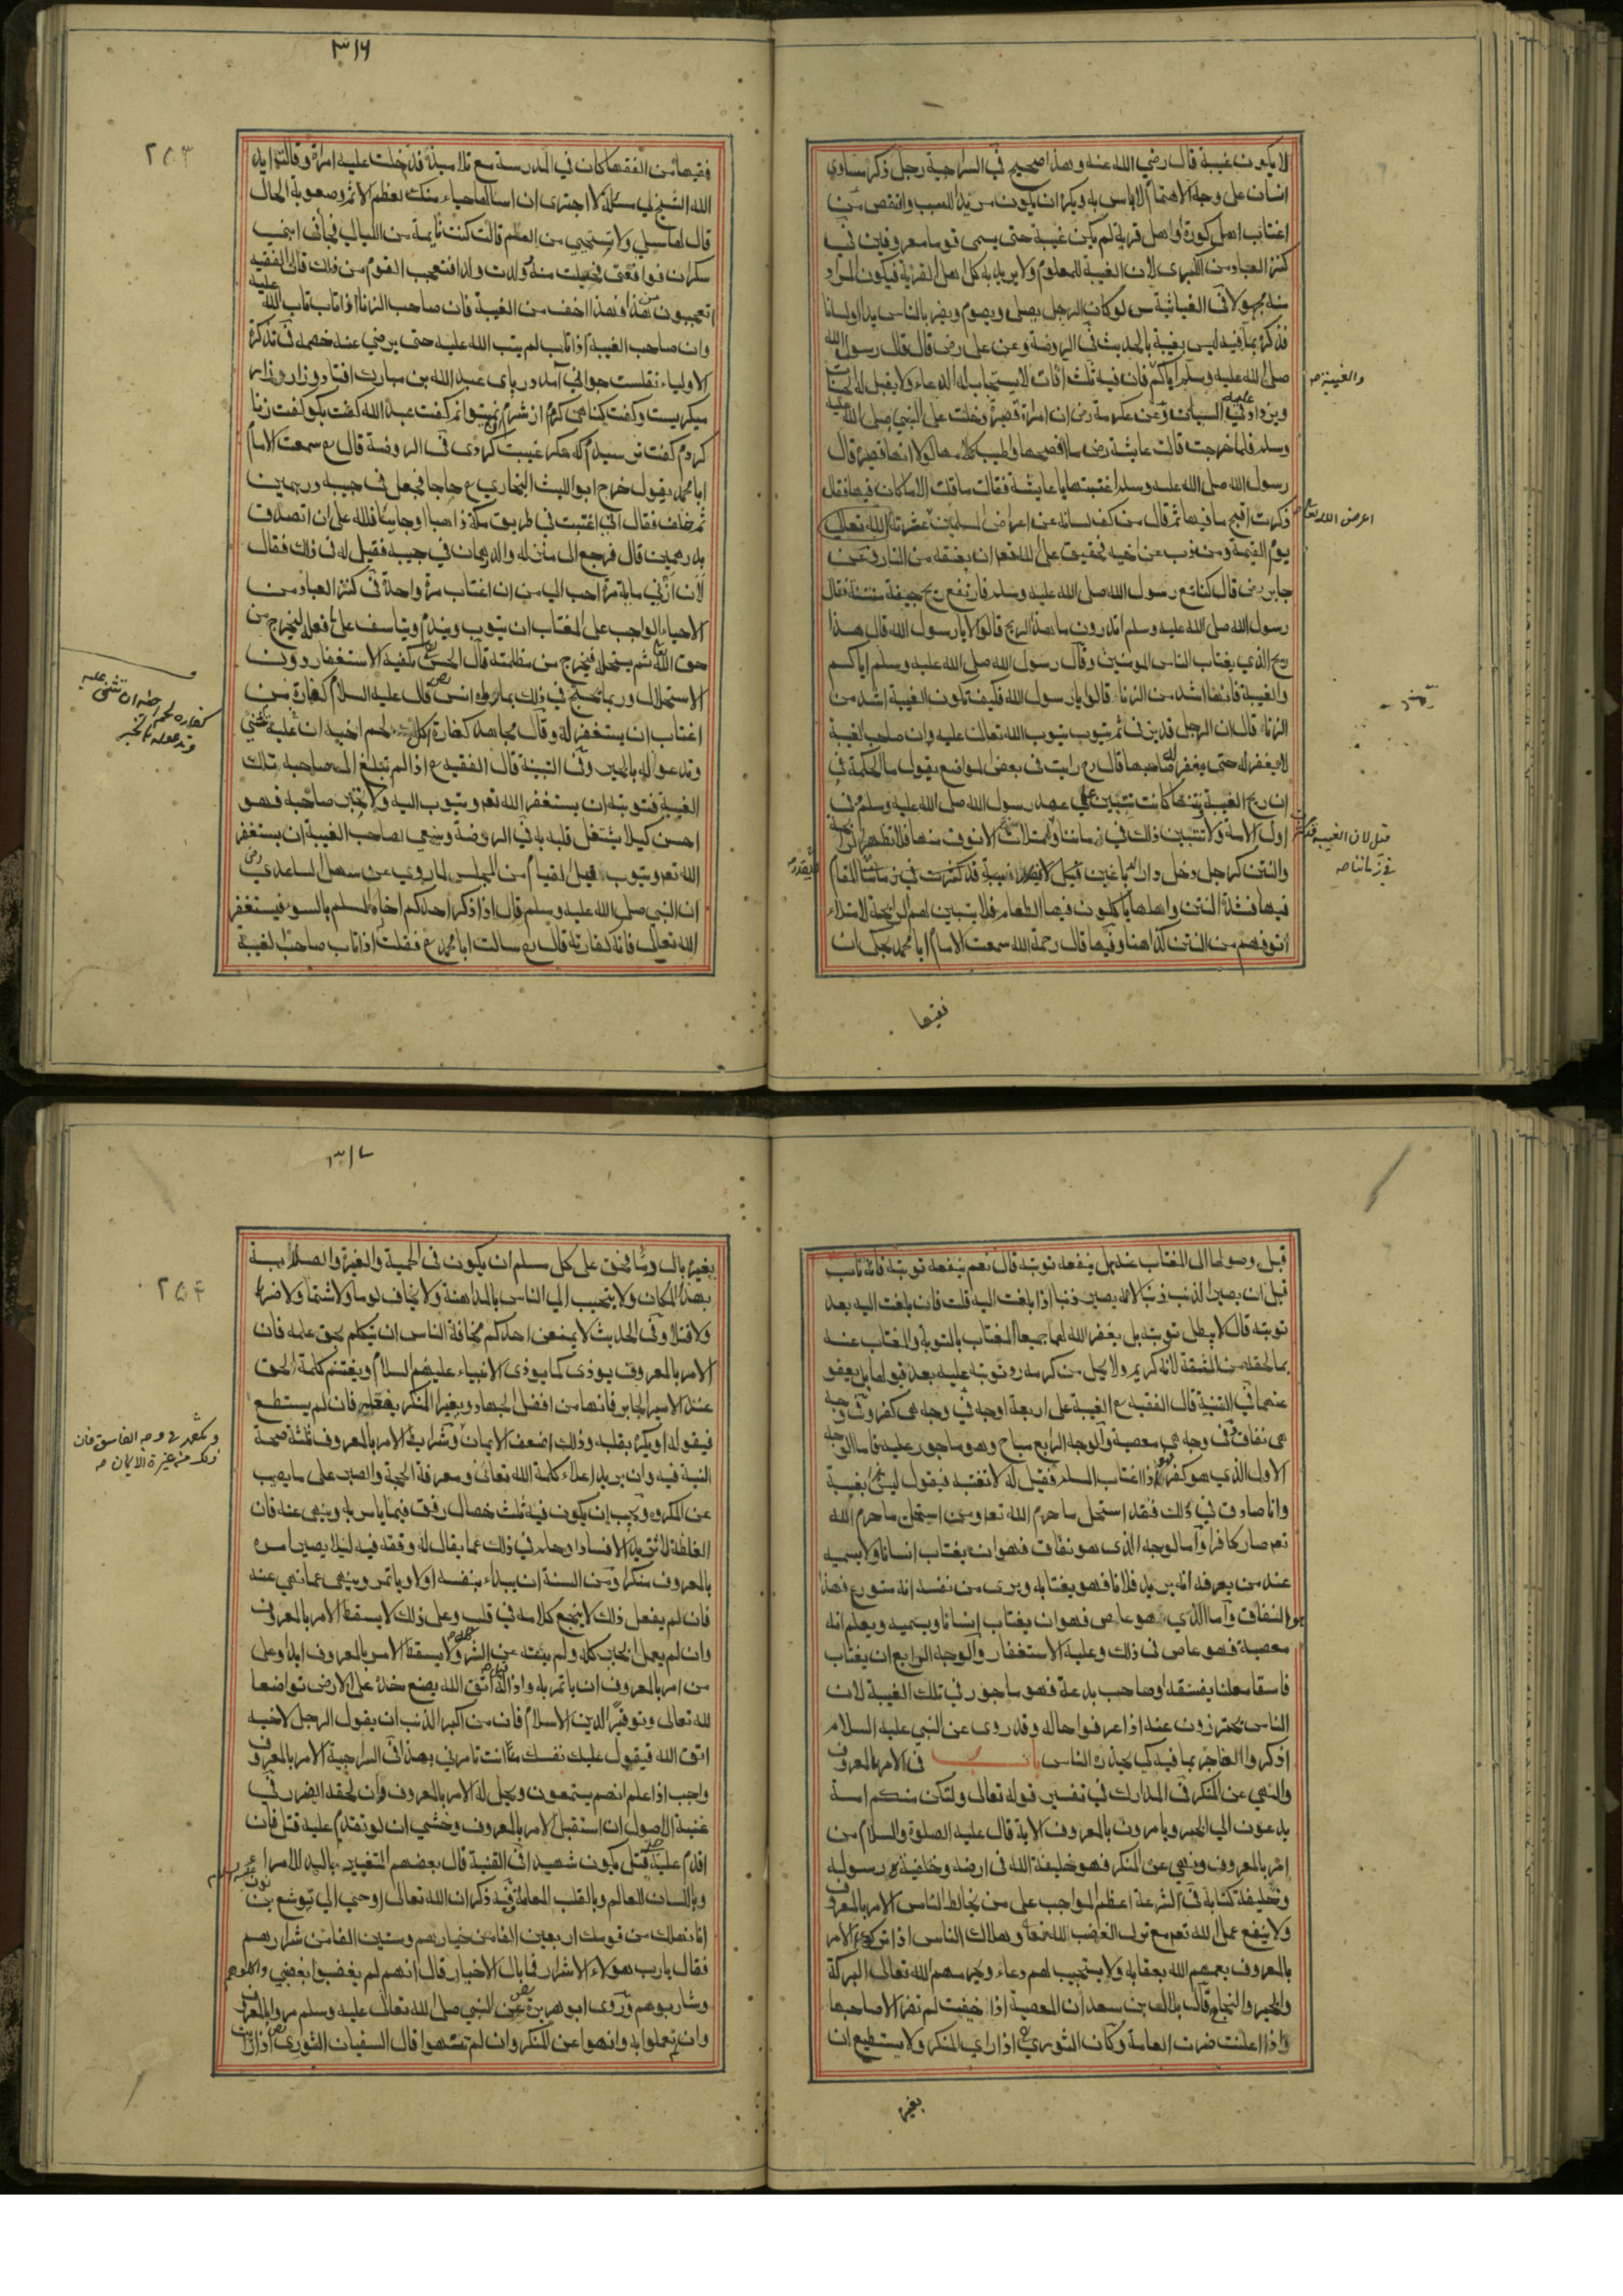 لا يكون غيبة قال رضي الله عنه وهذا صحيح في السراجية رجل ذكر مساوي
انسان على وجه الاهتمام لا باس به ويكره ان يكون مريدا للسب والنقص من
اغتاب اهل كورة او اهل قرية لم يكن غيبة حتى يسمى قوما معروفين في
كنز العباد من الكبرى لان الغيبة للمعلوم ولا يريد به كل اهل القرية فيكون المراد
منه مجهولا في الغياثية س لو كان الرجل يصلى ويصوم ويضر بالناس يدا او لسانا
فذكره بما فيه ليس بغيبة بالحديث في الروضة وعن على رض قال قال رسول الله
صلى الله عليه وسلم اياكم فان فيه ثلث افات لا يستجاب له الدعاء ولا يقبل له الحسنات
والغيبة صح
ويزداد عليه السيات وعن عكرمة رض ان امراة قصيرة دخلت على النبي صلى الله عليه
وسلم فلما خرجت قالت عايشة رض ما افصحها واطيب كلامها لولا انها قصيرة قال
رسول الله صلى الله عليه وسلم اغتبتها يا عايشة فقالت ما قلت الا ما كان فيها فقال
ذكرت اقبح ما فيها ثم قال من كف لسانه عن اعراض المسلمين عثرته الله تعالى
يوم القيمة ومن ذب عن اخيه فحقيق على الله تعم ان يعتقه من النار وعن
جابر رض قال كنا مع رسول الله صلى الله عليه وسلم فارتفع ريح جيفة منتنة فقال
رسول الله صلى الله عليه وسلم اتدرون ما هذا الريح قالوا لا يا رسول الله قال هذا
ريح الذي يغتاب الناس المومنين وقال رسول الله صلى الله عليه وسلم اياكم
والغيبة فانها اشد من الزنا قالوا يا رسول الله فكيف تكون الغيبة اشد من
الزنا قال ان الرجل قد يزني ثم يتوب يتوب الله تعالى عليه وان صاحب الغيبة
لا يغفر له حتى يغفر له صاحبها قال رح رايت في بعض المواضع يقول ما الحكمة في
ان ريح الغيبة ونتنها كانت تتبين على عهد رسول الله صلى الله عليه وسلم في
اول الامة ولا تتبين ذلك في زماننا وامتلات الانوف منها فلا تظهر الرايحة
قيل لان الغيبة قد كثرت
في زماننا صح
والنتن كرجل دخل دار الدباغين فيها لا يقدر المقام
فيها لشدة النتن واهلها ياكلون فيها الطعام فلا يتبين لهم الرايحة لامتلاء
انوفهم من النتن كذا هنا وفيها قال رحمة الله سمعت الامام ابا محمد يحكى ان
فقيها
٣١٦
٢٥٣
فقيها من الفقها كان في المدرسة مع تلاميذة فدخلت عليه امراة وقالت ايد
الله الشيخ لي مسئلة لا اجترى ان اسالها حياء منك لعظم الاثم وصعوبة الحال
قال لها سيلي ولا تستحيي من العلم قالت كنت نايمة من الليالي فجاني ابني
سكران فواقعني فحبلت منه وولدت ولدا فتعجب القوم من ذلك قال الفقيه
اتعجبون من هذا وهذا اخف من الغيبة فان صاحب الزنا اذا تاب تاب الله عليه
وان صاحب الغيبة اذا تاب لم يتب الله عليه حتى يرضي عنه خصمه في تذكرة
الاولياء نقلست جواني آمد در پاى عبد الله بن مبارك افتاد وزار وزار
ميكريست وكفت كناهى كردم از شرم نميتوانم كفت عبد الله كفت بكو كفت زنا
كردم كفت ترسيدم كه مكر غيبت كردى في الروضة قال رح سمعت الامام
ابا محمد يقول خرج ابو الليث البخاري رح حاجا فجعل في جيبه درهمين
ثم حلف فقال ان اغتبت في طريق مكة ذاهبا او جايبا فلله على ان اتصدق
بدرهمين قال فرجع الى منزله والدرهمان في جيبه فقيل له في ذلك فقال
لان ازني ماية مرة احب الي من ان اغتاب مرة واحدة في كنز العباد من
الاحياء الواجب على المغتاب ان يتوب ويندم ويتاسف على ما فعله ليخرج من
حق الله تعا ثم يستحل فيخرج من مظلمته قال الحسن يكفيه الاستغفار دون
الاستحلال وربما يحتج في ذلك بما رواه انس رض قال عليه السلام كفارة من
اغتاب ان يستغفر له وقال مجاهد كفارة اكلك لحم اخيه ان تثنى عليه
وتدعو له بالخير وفي التبينة قال الفقيه رح اذا لم تبلغ الى صاحبه تلك
الغيبة فتوبته ان يستغفر الله تعم ويتوب اليه ولا يخبر صاحبه فهو
احسن كيلا يشتغل قلبه به في الروضة وينبغي لصاحب الغيبة ان يستغفر
الله تعم ويتوب قبل القيام من المجلس لما روي عن سهل الساعدي رض
ان النبي صلى الله عليه وسلم قال اذا ذكر احدكم اخاه المسلم بالسوء فيستغفر
الله تعالى فانه كفارته قال رح سالت ابا محمد رح فقلت اذا تاب صاحب الغيبة
قبل وصولها الى المغتاب عنه هل ينفعه توبته قال نعم ينفعه توبته فانه تاب
قبل ان يصير الذنب ذنبا لانه يصير ذنبا اذا بلغت اليه قلت فان بلغت اليه بعد
توبته قال لا يبطل توبته بل يغفر الله لهما جميعا المغتاب بالتوبة والمغتاب عنه
بما لحقه من المشقة لانه كريم ولا يحل من كرمه رد توبته عليه بعد قبولها بل يعفو
عنهما في القنية قال الفقيه رح الغيبة على اربعة اوجه في وجه هى كفر وفي وجه
هى نفاق وفي وجه هى معصية والوجه الرابع مباح وهو ماجور عليه فاما الوجه
الاول الذي هو كفر هو اذا اغتاب المسلم فقيل له لا تغتب فيقول ليس هذا بغيبة
وانا صادق في ذلك فقد استحل ما حرم الله تعم ومن استحل ما حرم الله
تعم صار كافرا واما الوجه الذى هو نفاق فهو ان يغتاب انسانا ولا يسميه
عند من يعرفه انه يريد فلانا فهو يغتابه ويرى من نفسه انه متورع فهذا
هو النفاق واما الذي هو عاص فهو ان يغتاب انسانا ويسميه ويعلم انه
معصية فهو عاص في ذلك وعليه الاستغفار والوجه الرابع ان يغتاب
فاسقا معلنا بفسقه او صاحب بدعة فهو ماجور في تلك الغيبة لان
الناس يحترزون عنه اذا عرفوا حاله وقد روى عن النبي عليه السلام
اذكروا الفاجر بما فيه كي يحذره الناس باب في الامر بالمعروف
والنهي عن المنكر في المدارك في تفسير قوله تعالى ولتكن منكم امة
يدعون الي الخير ويامرون بالمعروف الاية قال عليه الصلوة والسلام من
امر بالمعروف ونهي عن المنكر فهو خليفة الله في ارضه وخليفة رسوله
وخليفة كتابه في الشرعة اعظم الواجب على من يخالط الناس الامر بالمعروف
ولا ينفع عمل لله تعم مع ترك الغضب لله تعا وهلاك الناس اذا تركوا الامر
بالمعروف بعمهم الله بعقابه ولا يستجيب لهم دعاء ويحرمهم الله تعالى البركة
والخير والنجاح قال بلال بن سعد ان المعصية اذا خفيت لم تضر الا صاحبها
واذا اعلنت ضرت العامة وكان الثوري رح اذا راي المنكر ولا يستطيع ان
بغيره
٣١٧
٢٥٤
بغيره بال ومما يحق على كل مسلم ان يكون في الحمية والغيرة والصلابة
بهذا المكان ولا يتحبب الي الناس بالمداهنة ولا يخاف لوما ولا شتما ولا ضربا
ولا قتلا وفي الحديث لا يمنعن احدكم مخافة الناس ان يتكلم بحق علمه فان
الامر بالمعروف يوذى كما يوذى الانبياء عليهم السلام ويغتنم كلمة الحق
عند الامير الجابر فانها من افضل الجهاد ويغير المنكر بفعله فان لم يستطع
فبقوله او يكره بقلبه وذلك اضعف الايمان وشرايط الامر بالمعروف ثلثة صحة
النية فيه وان يريد اعلاء كلمة الله تعالى ومعرفة الحجة والصبر على ما يصيب
عن المكروه ويجب ان يكون فيه ثلث خصال رفق فيما يامر به وينهي عنه فان
الغلظة لا تزيد الا فسادا وحلم في ذلك عما يقال له وفقه فيه ليلا يصير امره
بالمعروف منكرا ومن السنة ان يبداء بنفسه اولا وياتمر وينهى عما نهي عنه
فان لم يفعل ذلك لا ينجع كلامه في قلب وعلى ذلك لا يسقط الامر بالمعروف
وان لم يعمل الخير كله ولم ينته عن الشر كله ولا يسقط الامر بالمعروف ابدا وعلى
من امر بالمعروف ان ياتمر به واذا قيل له اتق الله يضع خده على الارض تواضعا
لله تعالى وتوقيرا لدين الاسلام فان من اكبر الذنب ان يقول الرجل لاخيه
اتق الله فيقول عليك نفسك انت تامرني بهذا في السراجية الامر بالمعروف
واجب اذا علم انهم يستمعون ويحل له الامر بالمعروف وان لحقه الضرر في
غنية الاصول ان استقبل الامر بالمعروف وخشي ان لو تقدم عليه قتل فان
اقدم عليه حتى قتل يكون شهيدا في القنية قال بعضهم التغيير باليد للامراء
وباللسان للعالم وبالقلب للعامة وفيه ذكر ان الله تعالى اوحي الي يوشع بن نون
انا نهلك من قومك اربعين الفا من خيارهم وستين الفا من شرارهم
فقال يا رب هولاء الاشرار فما بال الاخيار قال انهم لم يغضبوا بغضبي واكلوهم
وشاربوهم وروى ابو هريرة رض عن النبي صلى الله تعالى عليه وسلم مروا بالمعروف
وان لم تعملوا به وانهوا عن المنكر وان لم تنتهوا قال السفيان الثوري رض اذا رايت